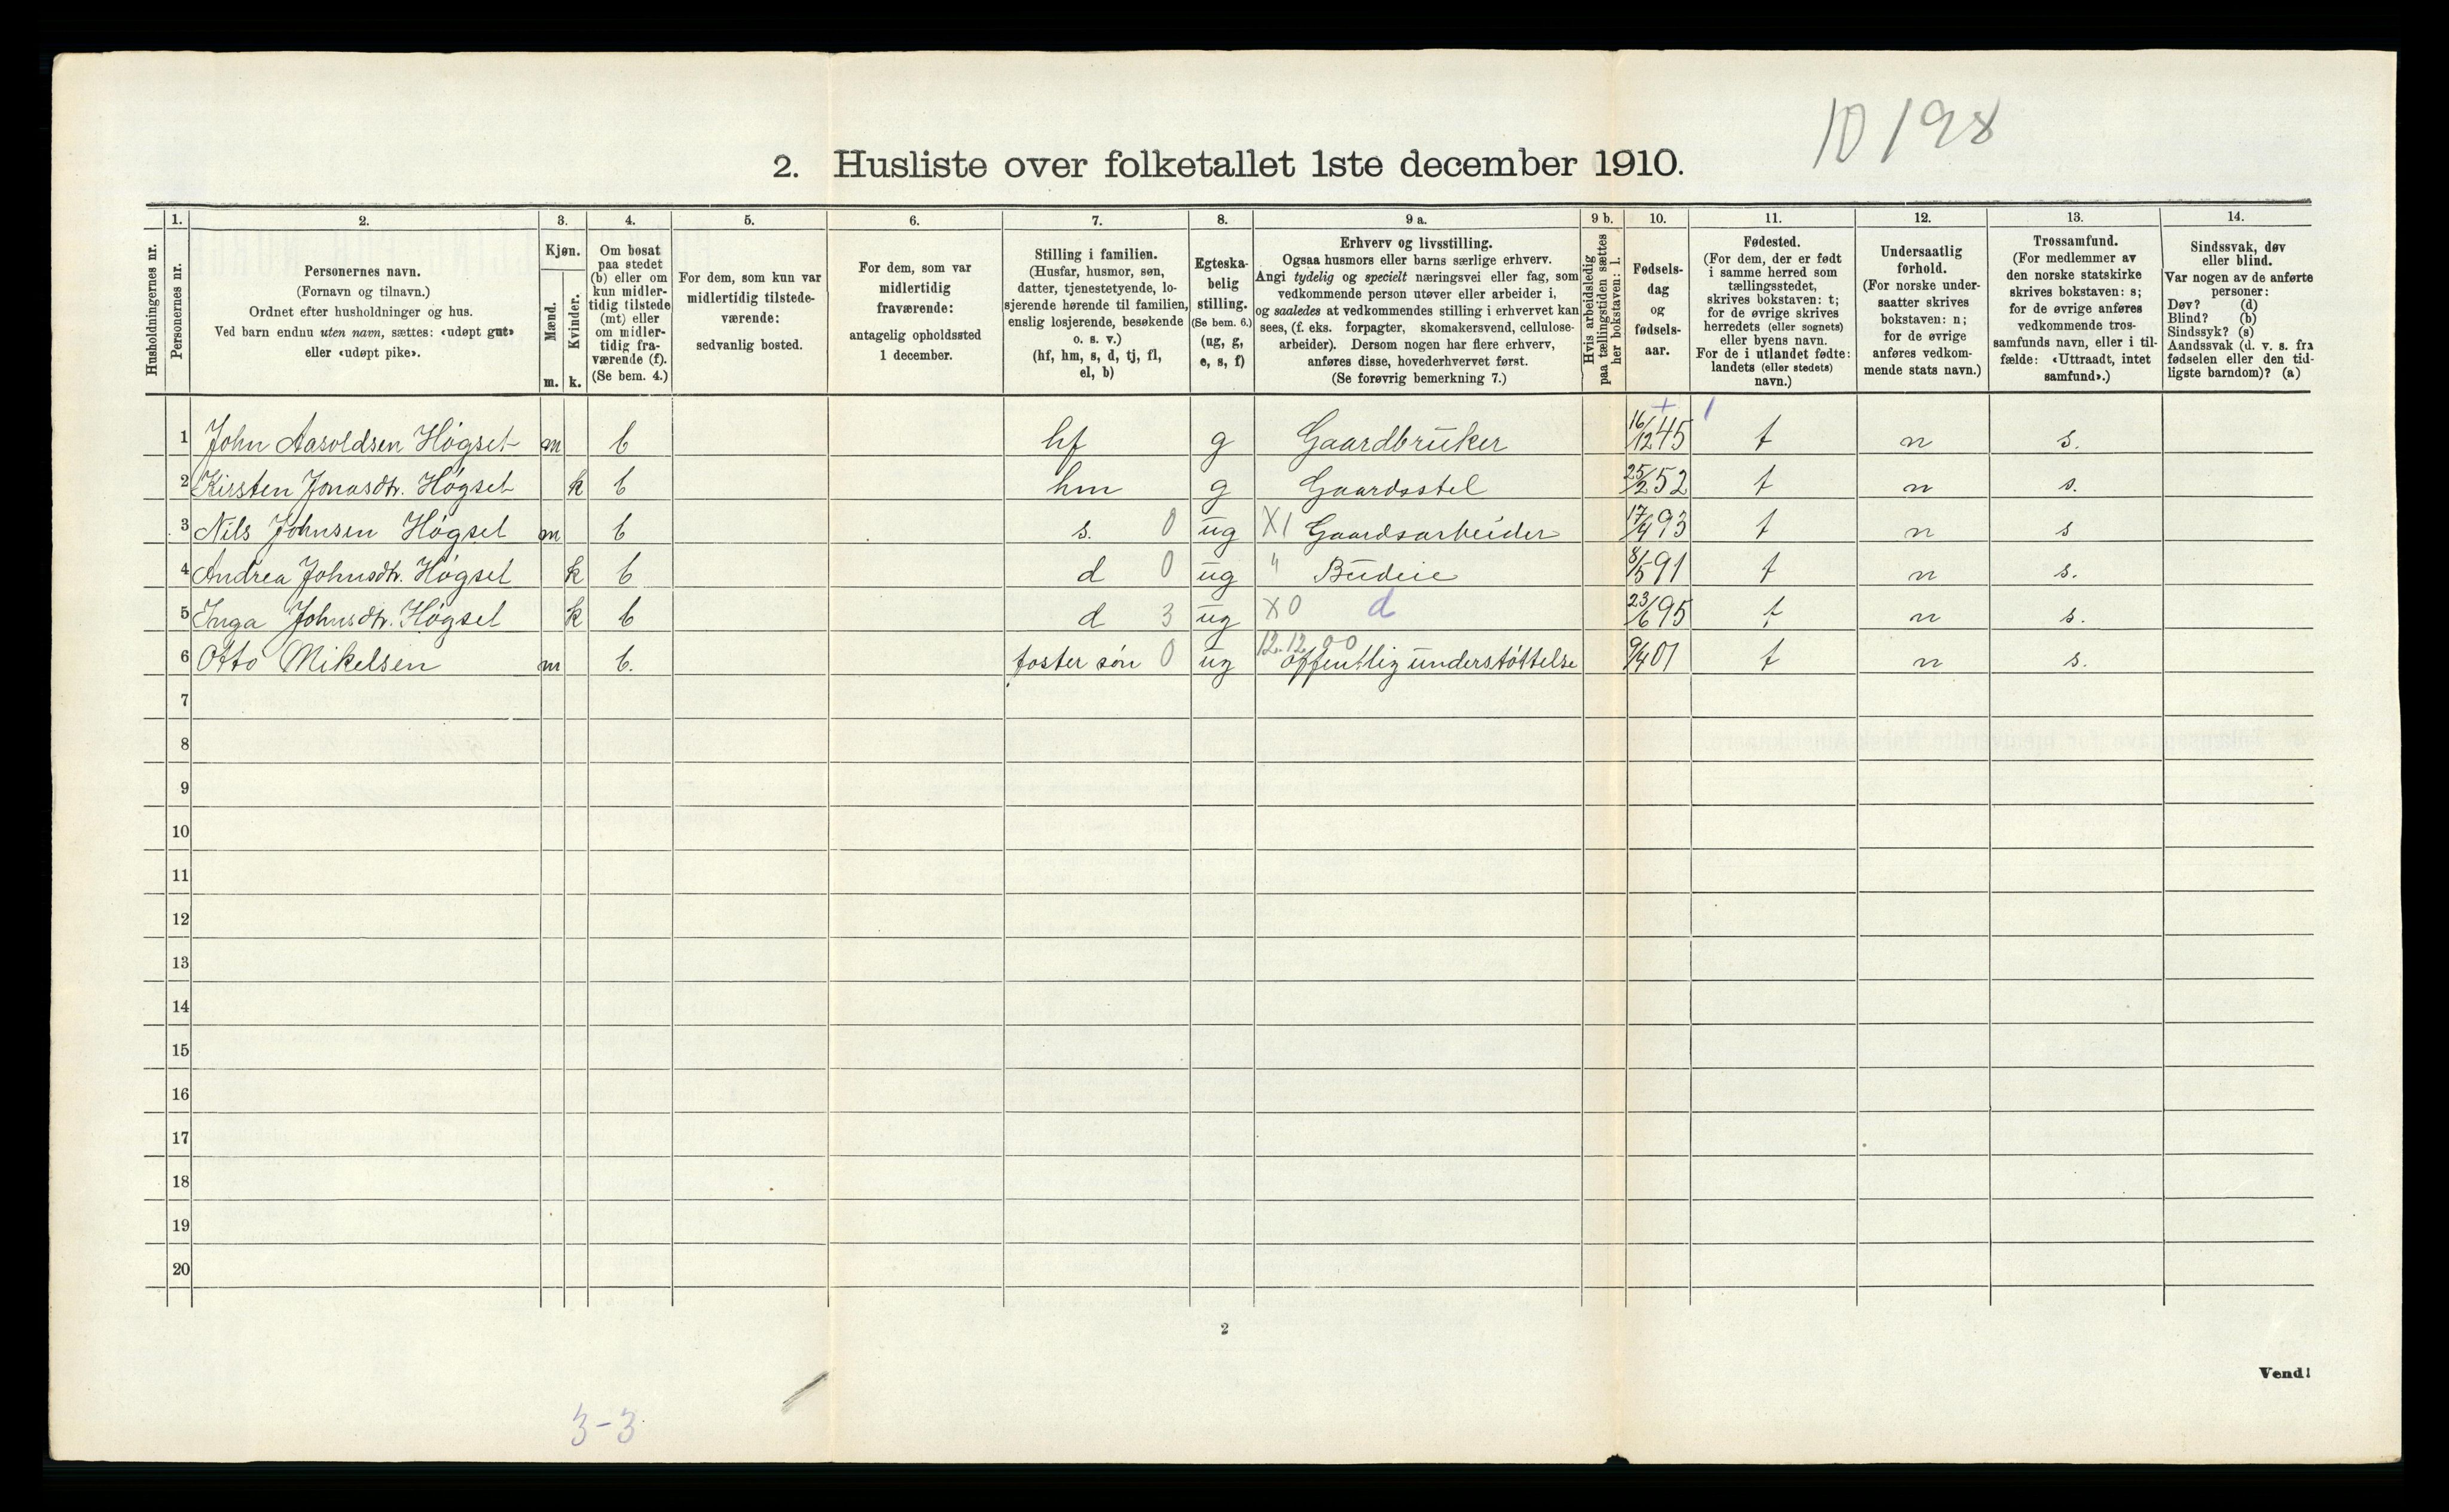 10/98
2. Husliste over folketallet 1ste december 1910.
Husholdningernes nr.
1.
Personernes nr.
2.
Personernes navn.
(Fornavn og tilnavn.)
Ordnet efter husholdninger og hus.
Ved barn endnu uten navn, sættes: «udøpt gut»
eller «udøpt pike».
3.
Kjøn.
Mænd.
Kvinder.
m. k.
4.
Om bosat
paa stedet
(b) eller om
kun midler-
tidig tilstede
(mt) eller
om midler-
tidig fra-
værende (f).
(Se bem. 4.)
5.
For dem, som kun var
midlertidig tilstede-
værende:
sedvanlig bosted.
6.
For dem, som var
midlertidig
fraværende:
antagelig opholdssted
1 december.
7.
Stilling i familien.
(Husfar, husmor, søn,
datter, tjenestetyende, lo-
sjerende hørende til familien,
enslig losjerende, besøkende
o. s. v.)
(hf, hm, s, d, tj, fl,
el, b)
8.
Egteska-
belig
stilling.
(Se bem. 6.)
(ug, g,
e, s, f)
9 a.
Erhverv og livsstilling.
Ogsaa husmors eller barns særlige erhverv.
Angi tydelig og specielt næringsvei eller fag, som
vedkommende person utøver eller arbeider i,
og saaledes at vedkommendes stilling i erhvervet kan
sees, (f. eks. forpagter, skomakersvend, cellulose-
arbeider). Dersom nogen har flere erhverv,
anføres disse, hovederhvervet først.
(Se forøvrig bemerkning 7.)
9 b.
Hvis arbeidsledig
paa tællingstiden sættes
her bokstaven: l.
10.
Fødsels-
dag
og
fødsels-
aar.
11.
Fødested.
(For dem, der er født
i samme herred som
tællingsstedet,
skrives bokstaven: t;
for de øvrige skrives
herredets (eller sognets)
eller byens navn.
For de i utlandet fødte:
landets (eller stedets)
navn.)
12.
Undersaatlig
forhold.
(For norske under-
saatter skrives
bokstaven: n;
for de øvrige
anføres vedkom-
mende stats navn.)
13.
Trossamfund.
(For medlemmer av
den norske statskirke
skrives bokstaven: s;
for de øvrige anføres
vedkommende tros-
samfunds navn, eller i til-
fælde: «Uttraadt, intet
samfund».)
14.
Sindssvak, døv
eller blind.
Var nogen av de anførte
personer:
Døv? (d)
Blind? (b)
Sindssyk? (s)
Aandssvak (d. v. s. fra
fødselen eller den tid-
ligste barndom)? (a)
1 John Aaroldsen Høgset m b hf g Gaardbruker 16/12 45 t n s.
2 Kirsten Jonasdtr. Høgset k b hm g Gaardsstel 25/2 52 t n s.
3 Nils Johnsen Høgset m b s. 0 ug X1 Gaardsarbeider 17/4 93 t n s
4 Andrea Johnsdtr. Høgset k b d 0 ug " Budeie 8/5 91 t n s.
5 Inga Johnsdtr. Høgset k b d 3 ug X0 d 23/6 95 t n s.
6 Otto Mikelsen m b. foster søn 0 ug 12.12.00 offentlig understøttelse 9/4 01 t n s.
7
8
9
10
11
12
13
14
15
16
17
18
19
20
2
Vend!
3-3